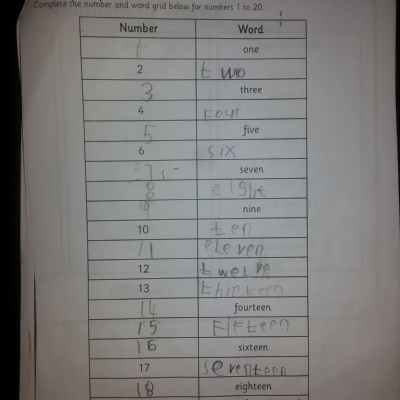 Complete the number and word grid below for numbers 1 to 20.
Number Word
1 one
2 two
3 three
4 Four
5 five
6 six
7 seven
8 eight
nine
10 ten
11 eleven
12
13 thirteen
14 fourteen
15 Fifteen
16 sixteen
17 seventeen
18 eighteen